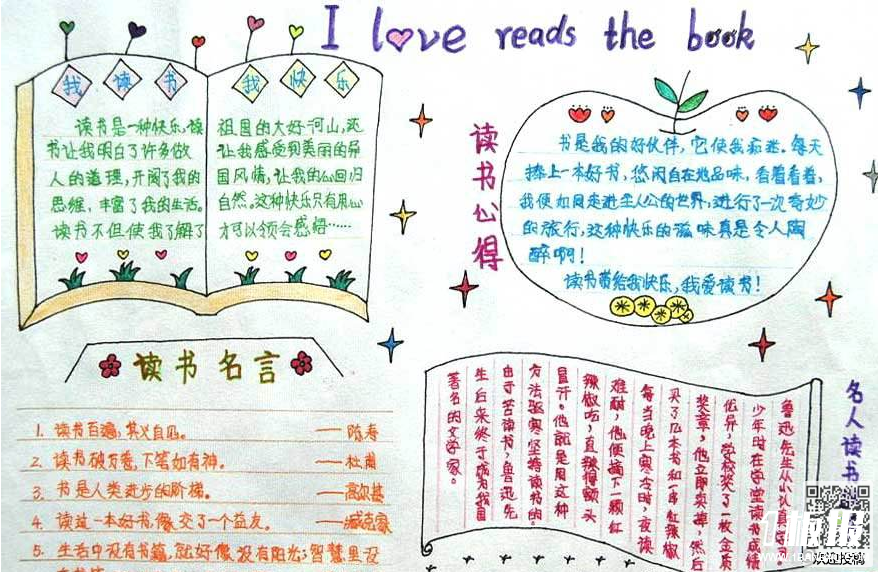 I love reads the book
我读书 我快乐
读书是一种快乐,读
书让我明白了许多做
人的道理,开阔了我的
思维、丰富了我的生活。
读书不但使我了解了
祖国的大好河山,还
让我感受到美丽的异
国风情,让我的心回归
自然,这种快乐只有用心
才可以领会感悟……
读书心得
书是我的好伙伴,它使我痴迷。每天
捧上一本好书,悠闲自在地品味,看着看着,
我便如同走进主人公的世界,进行了一次奇妙
的旅行,这种快乐的滋味真是令人陶
醉啊!
读书带给我快乐,我爱读书!
读书名言
1. 读书百遍,其义自见。 ——陈寿
2. 读书破万卷,下笔如有神。 ——杜甫
3. 书是人类进步的阶梯。 ——高尔基
4. 读过一本好书,像交了一个益友。 ——臧克家
5. 生活中没有书籍,就好像没有阳光;智慧里没
名人读书
鲁迅先生从小认真
少年时在学堂读书成绩
优异,学校奖了一枚金质
奖章,他立即卖掉,然后
买了几本书和一串红辣椒
每当晚上寒冷时,夜读
难耐,他便摘下一颗红
辣椒吃,直辣得额头
冒汗。他就是用这种
方法驱寒坚持读书的。
由于苦读书,鲁迅先
生后来终于成为我国
著名的文学家。